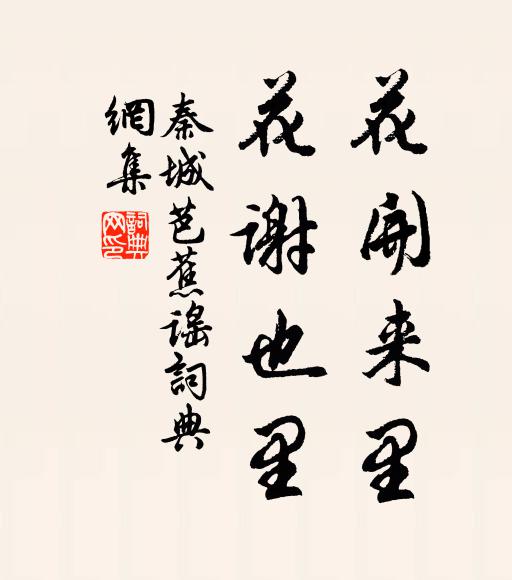 花開来里
花謝也里
秦城芭蕉謠詞典
網集
詞典
网印